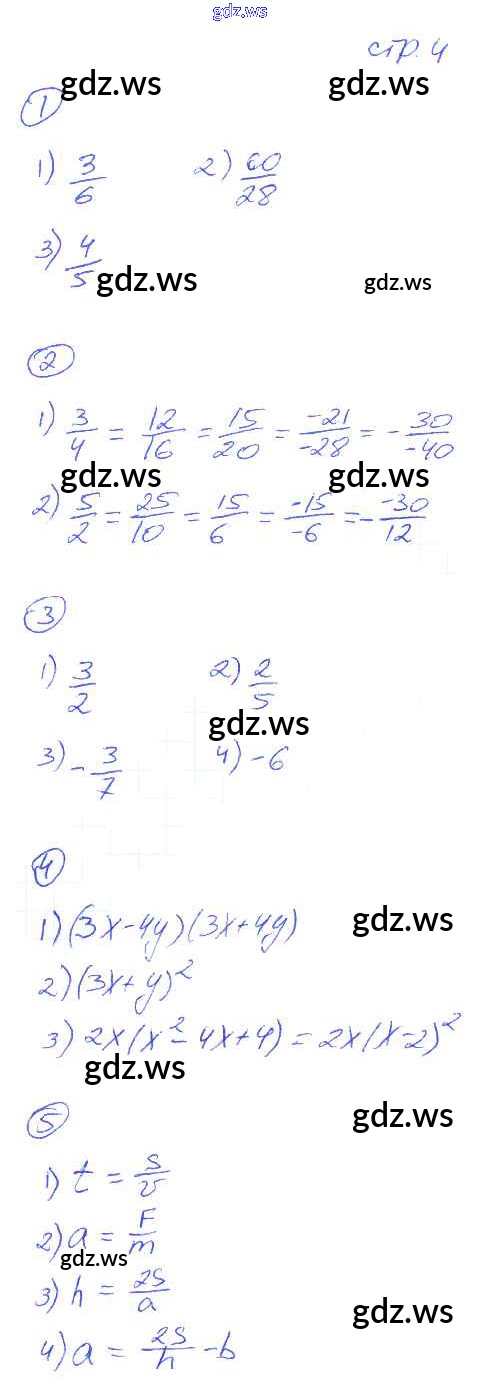 gdz.ws
стр. 4
gdz.ws gdz.ws
1
1) 3/6 2) 60/28
3) 4/5
gdz.ws gdz.ws
2
1) 3/4 = 12/16 = 15/20 = -21/-28 = - 30/-40
gdz.ws gdz.ws
2) 5/2 = 25/10 = 15/6 = -15/-6 = - -30/12
3
1) 3/2 2) 2/5
gdz.ws
3) - 3/7 4) -6
4
gdz.ws
1) (3x-4y)(3x+4y)
2) (3x+y)²
3) 2x(x²-4x+4) = 2x(x-2)²
gdz.ws
gdz.ws
5
1) t = s/v
2) a = F/m
gdz.ws
3) h = 2S/a
gdz.ws
4) a = 2S/h - b